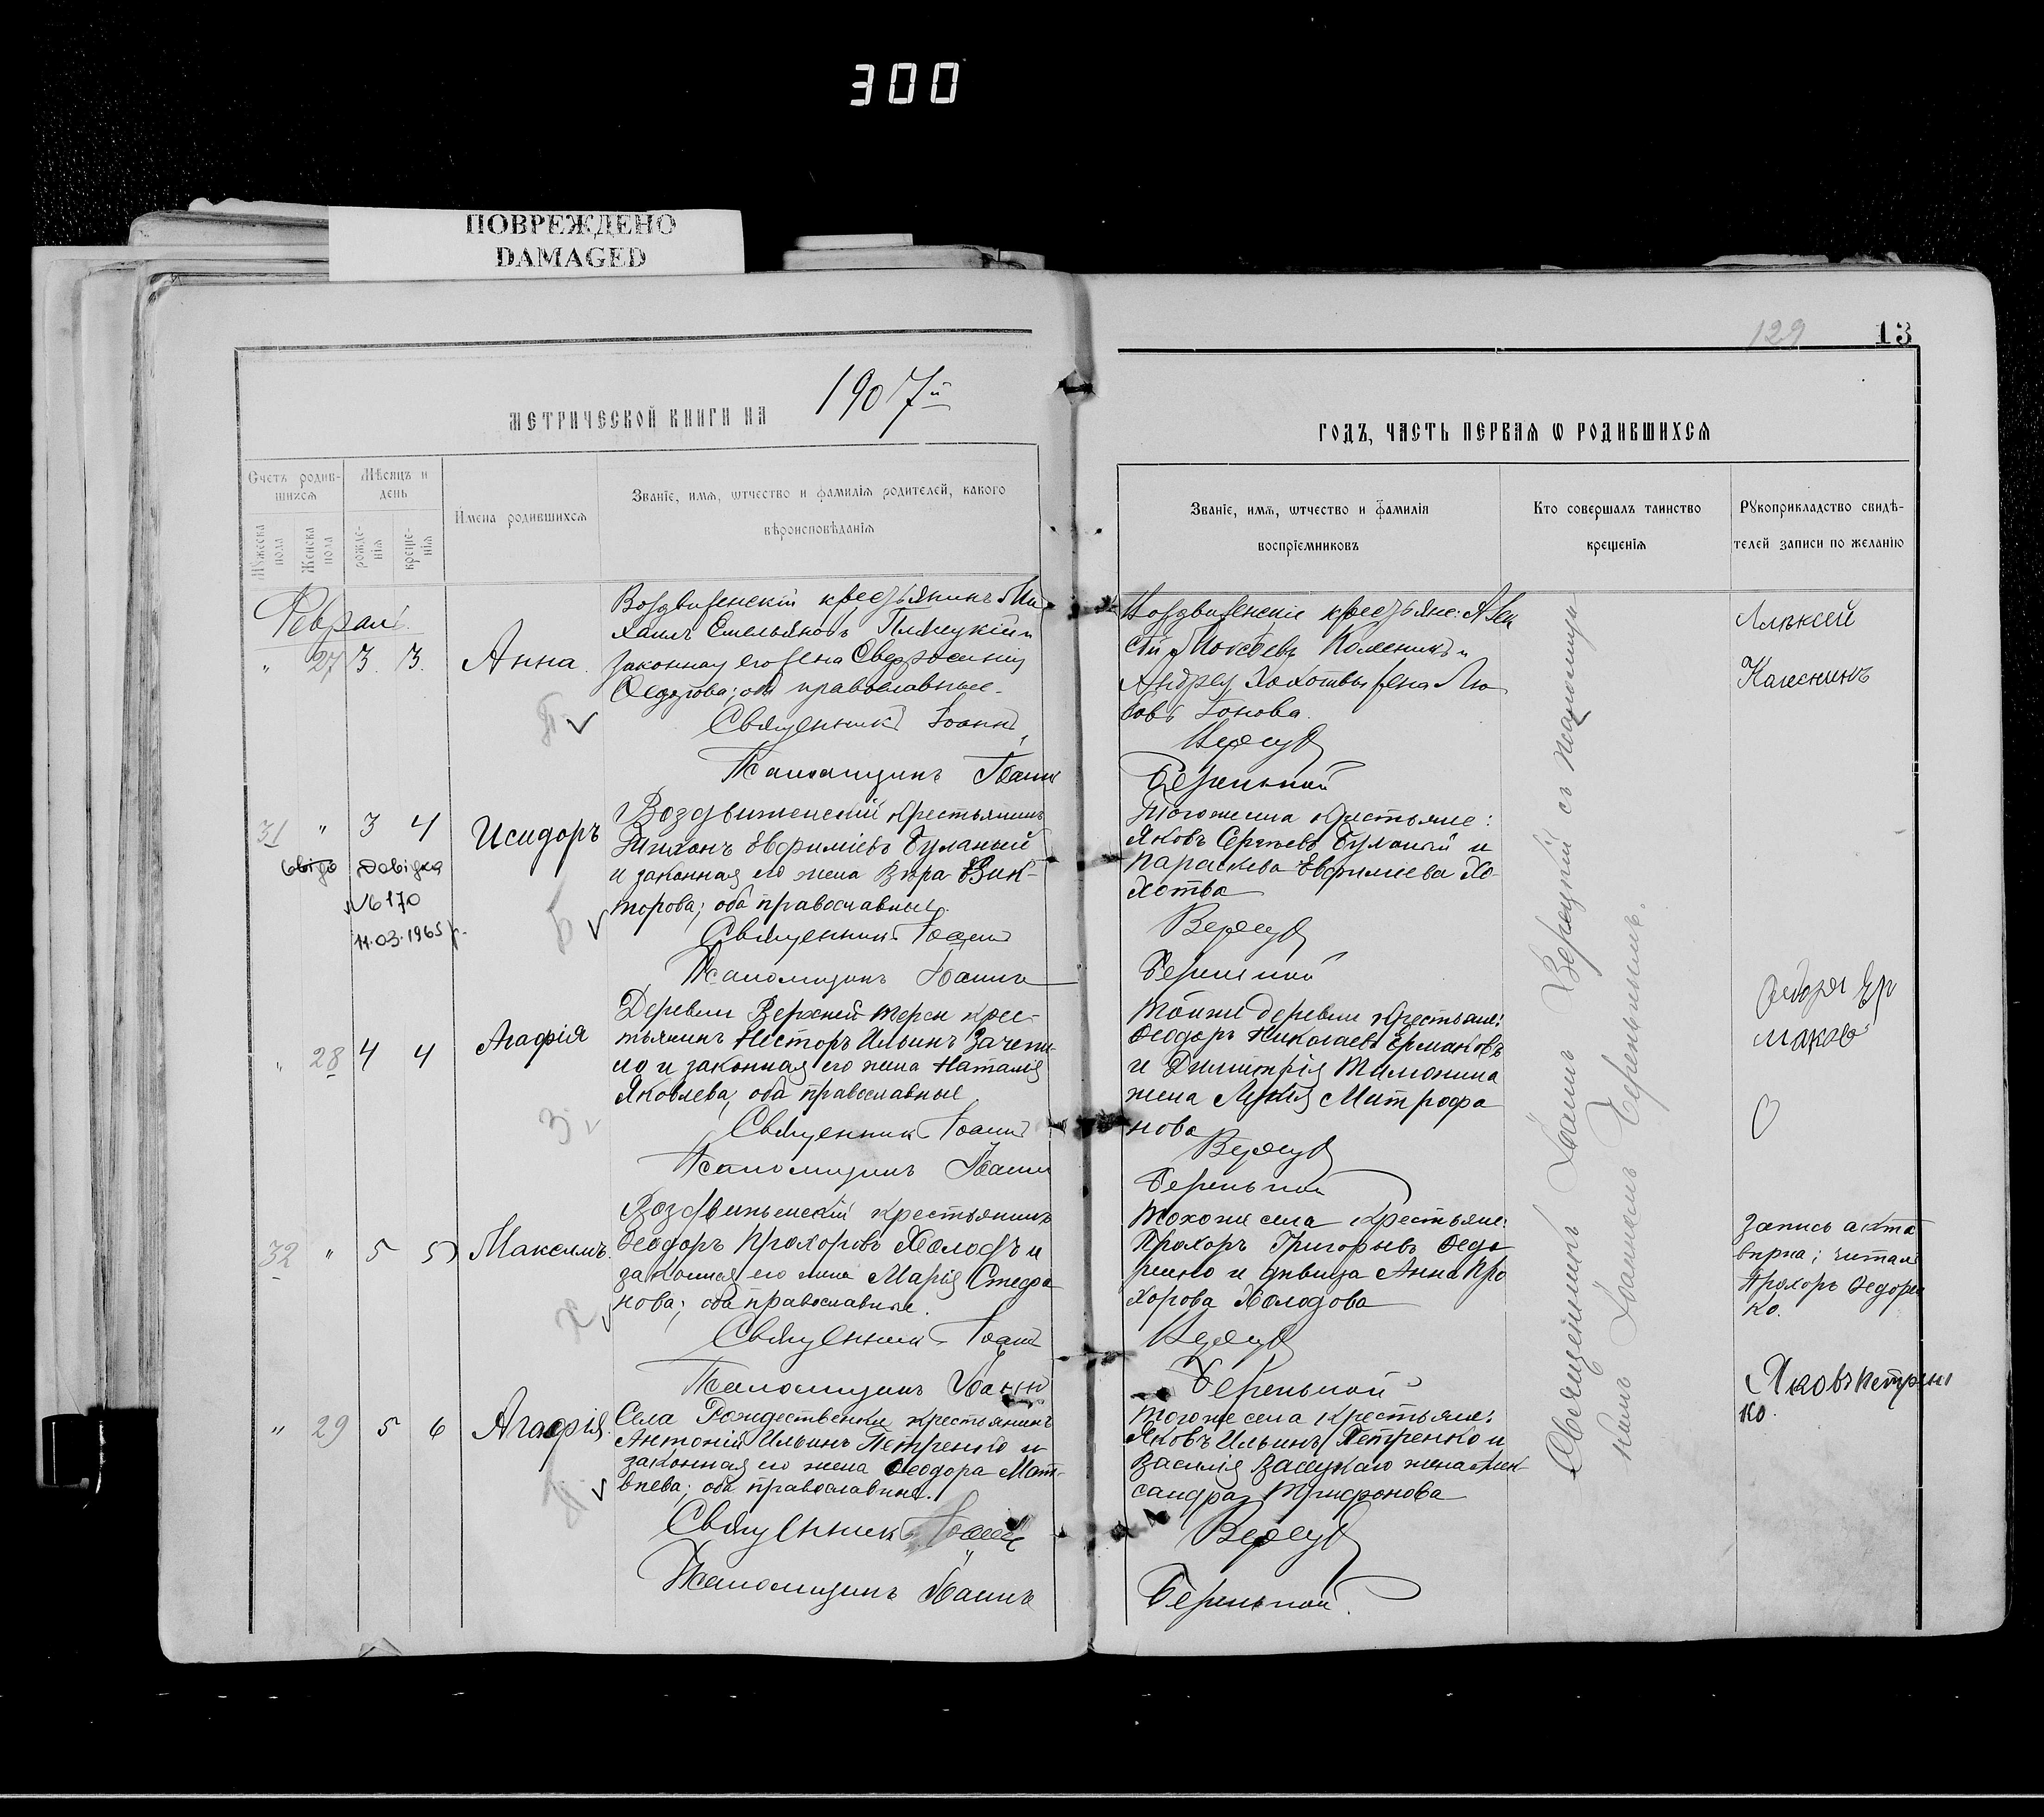 300
ПОВРЕЖДЕНО
DAMAGED
129 13
МЕТРИЧЕСКОЙ КНИГИ НА 1907й
ГОДЪ, ЧАСТЬ ПЕРВАЯ Ѡ РОДИВШИХСЯ
Счетъ родив-
шихся
Мужеска пола
Женска пола
Мѣсяцъ и
день
рожде-
нія
креще-
нія
Имена родившихся
Званіе, имя, ѡтчество и фамилія родителей, какого
вѣроисповѣданія
Званіе, имя, ѡтчество и фамилія
воспріемниковъ
Кто совершалъ таинство
крещенія
Рукоприкладство свидѣ-
телей записи по желанію
Феврал
" 27 3. 3. Анна.
Воздвиженскій крестьянинъ Ми
хаилъ Емельяновъ и
законная его жена Евфросинія
Федотова; оба православные.
Священникъ Іоаннъ
Псаломщикъ Іоаннъ
Воздвиженскіе крестьяне: Алек
сій Моисеевъ Колесникъ и
Андрея жена Лю
бовь
Верецкій
Беренькой
Алѣксей
Калеснікъ
31 " 3 4 Исидоръ
свідо Довідка
№170
11.03.1965 р.
Воздвиженскій крестьянинъ
Тихонъ Евфиміевъ Буланый
и законная его жена Вѣра Вик-
торова; оба православные.
Священникъ Іоаннъ
Псаломщикъ Іоаннъ
Б
Тогоже села крестьяне:
Яковъ Сергѣевъ Буланый и
Параскева Евфиміева Хо
хотва
Верецкій
Беренькой
" 28 4 4 Агафія
Деревни Верхней-Терсы крес-
тьянинъ Несторъ Ильинъ Зачепи-
ло и законная его жена Наталія
Яковлева; оба православные
Священникъ Іоаннъ
Псаломщикъ Іоаннъ
З.
Тойже деревни крестьяне:
Ѳеодоръ Николаевъ Ермаковъ
и Димитрія Тимонина
жена Лукія Митрофа
нова
Верецкій
Беренькой
Федоръ Ер
маковъ
32 " 5 5 Максимъ.
Воздвиженскій крестьянинъ
Ѳеодоръ Прохоровъ Холодъ и
законная его жена Марія Стефа
нова; оба православные.
Священникъ Іоаннъ
Псаломщикъ Іоаннъ
Х
Тогоже села крестьяне:
Прохоръ Григорьевъ Ѳедо
ренко и дѣвица Анна Про
хорова Холодова
Верецкій
Беренькой
Запись акта
вѣрна; читалъ
Прохоръ Ѳедорен
ко.
" 29 5 6 Агафія.
Села Рождественки крестьянинъ
Антоній Ильинъ Петренко и
законная его жена Ѳеодора Мат-
вѣева; оба православные.
Священникъ Іоаннъ
Псаломщикъ Іоаннъ
П
Тогоже села крестьяне:
Яковъ Ильинъ Петренко и
Василія жена Алек-
сандра Трифонова
Верецкій
Беренькой.
Яковъ Петрен
ко.
Священникъ Іоаннъ Верецкій съ псаломщи
комъ Іоанномъ Беренькимъ.